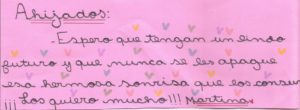 Ahijados:
- Espero que tengan un lindo
futuro y que nunca se les apague
esa hermosa sonrisa que los
¡¡¡Los quiero mucho!!!